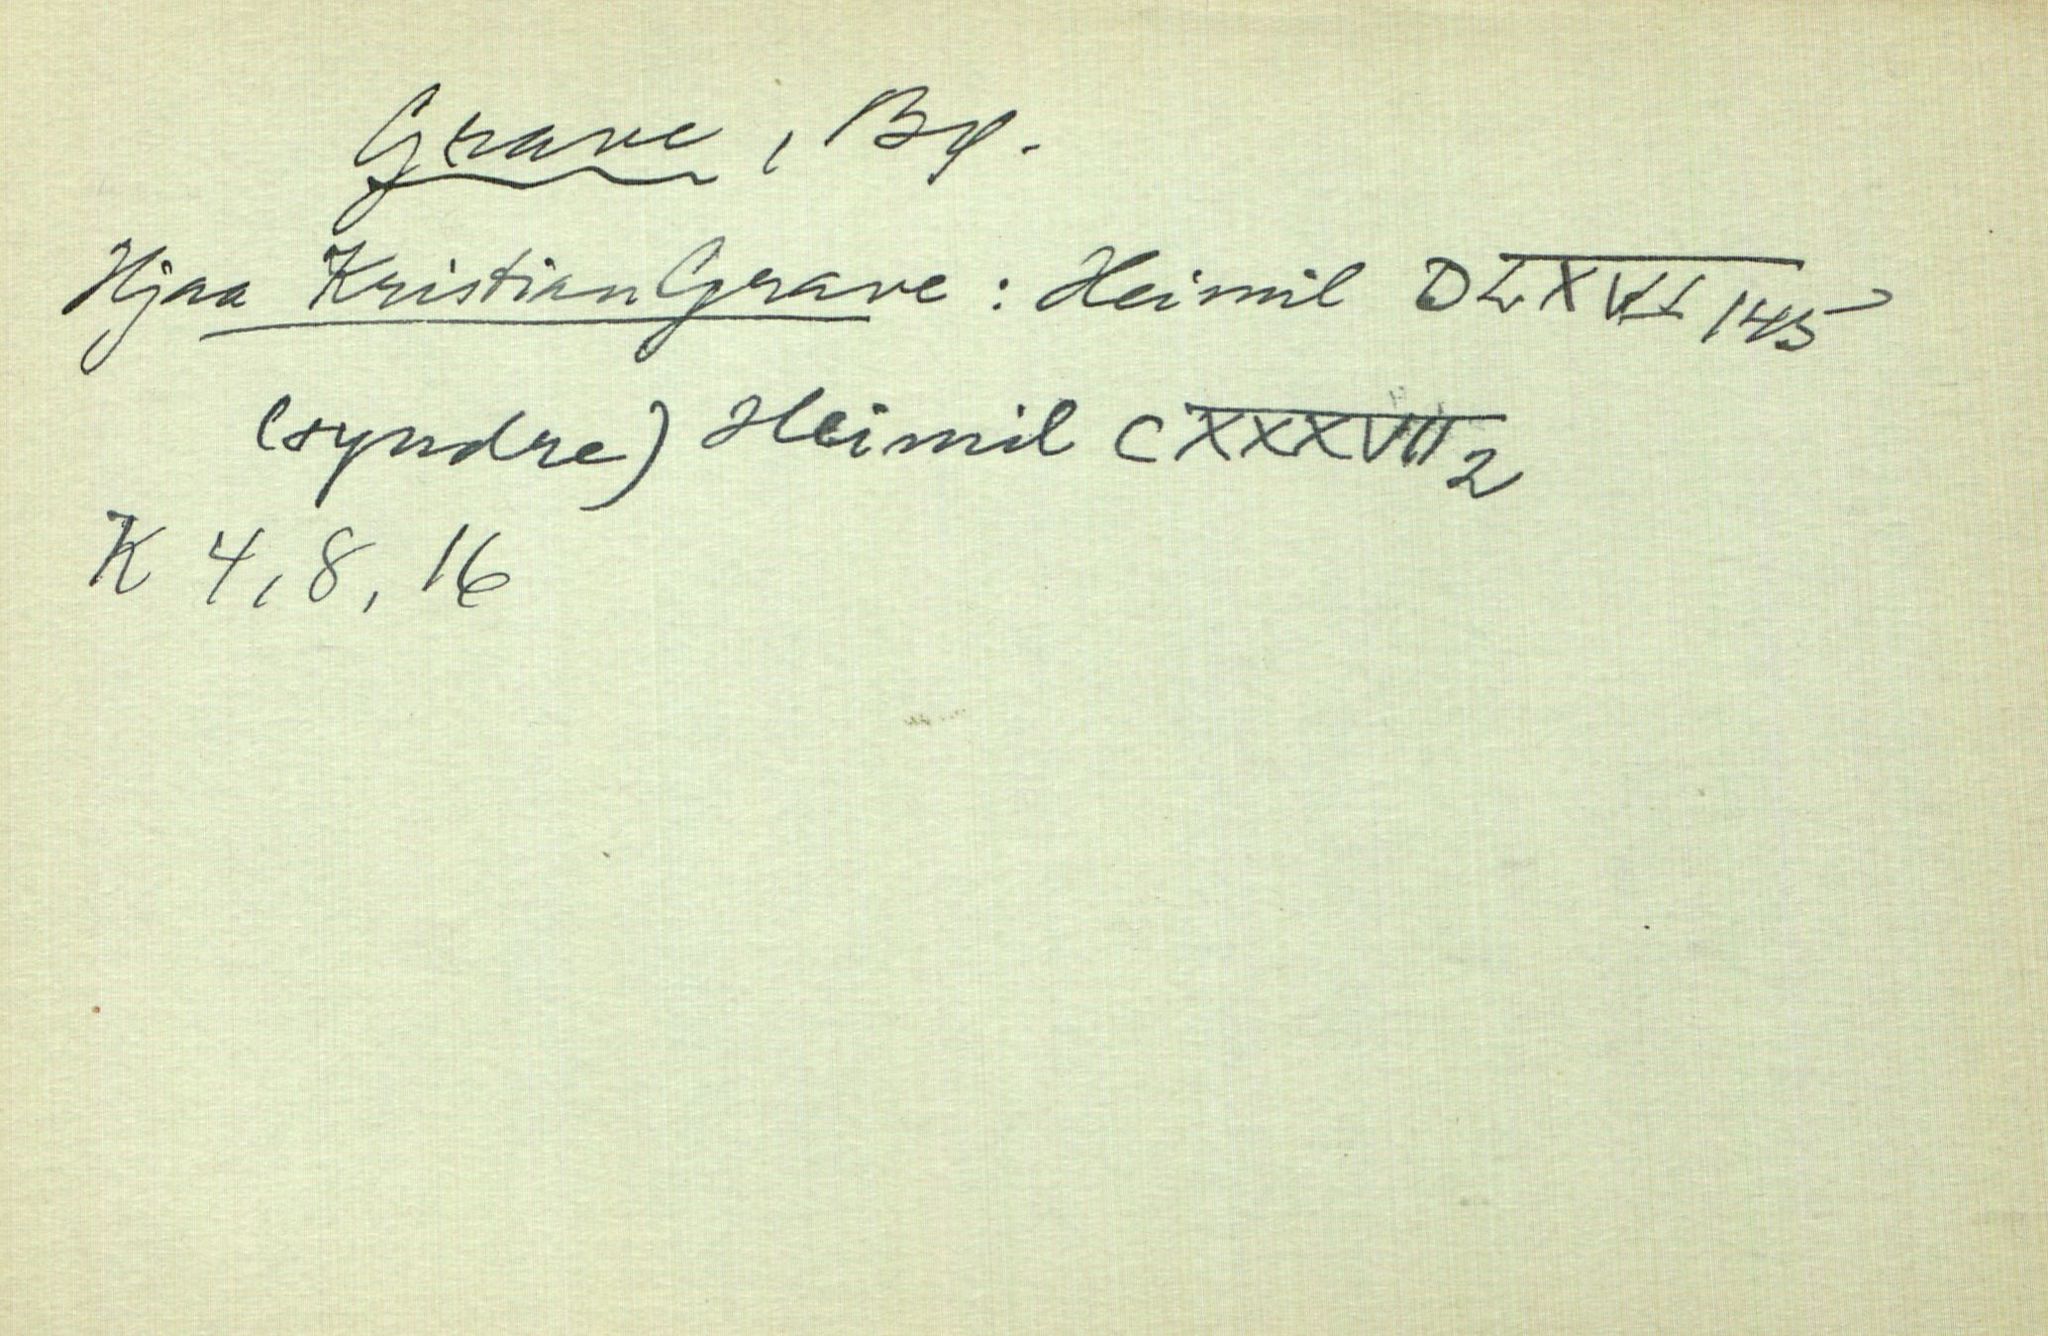 Grave, Bø.
Hjaa Kristian Grave: Heimil DLXVI 145
(syndre) Heimil CXXXVII 2
K 4, 8, 16